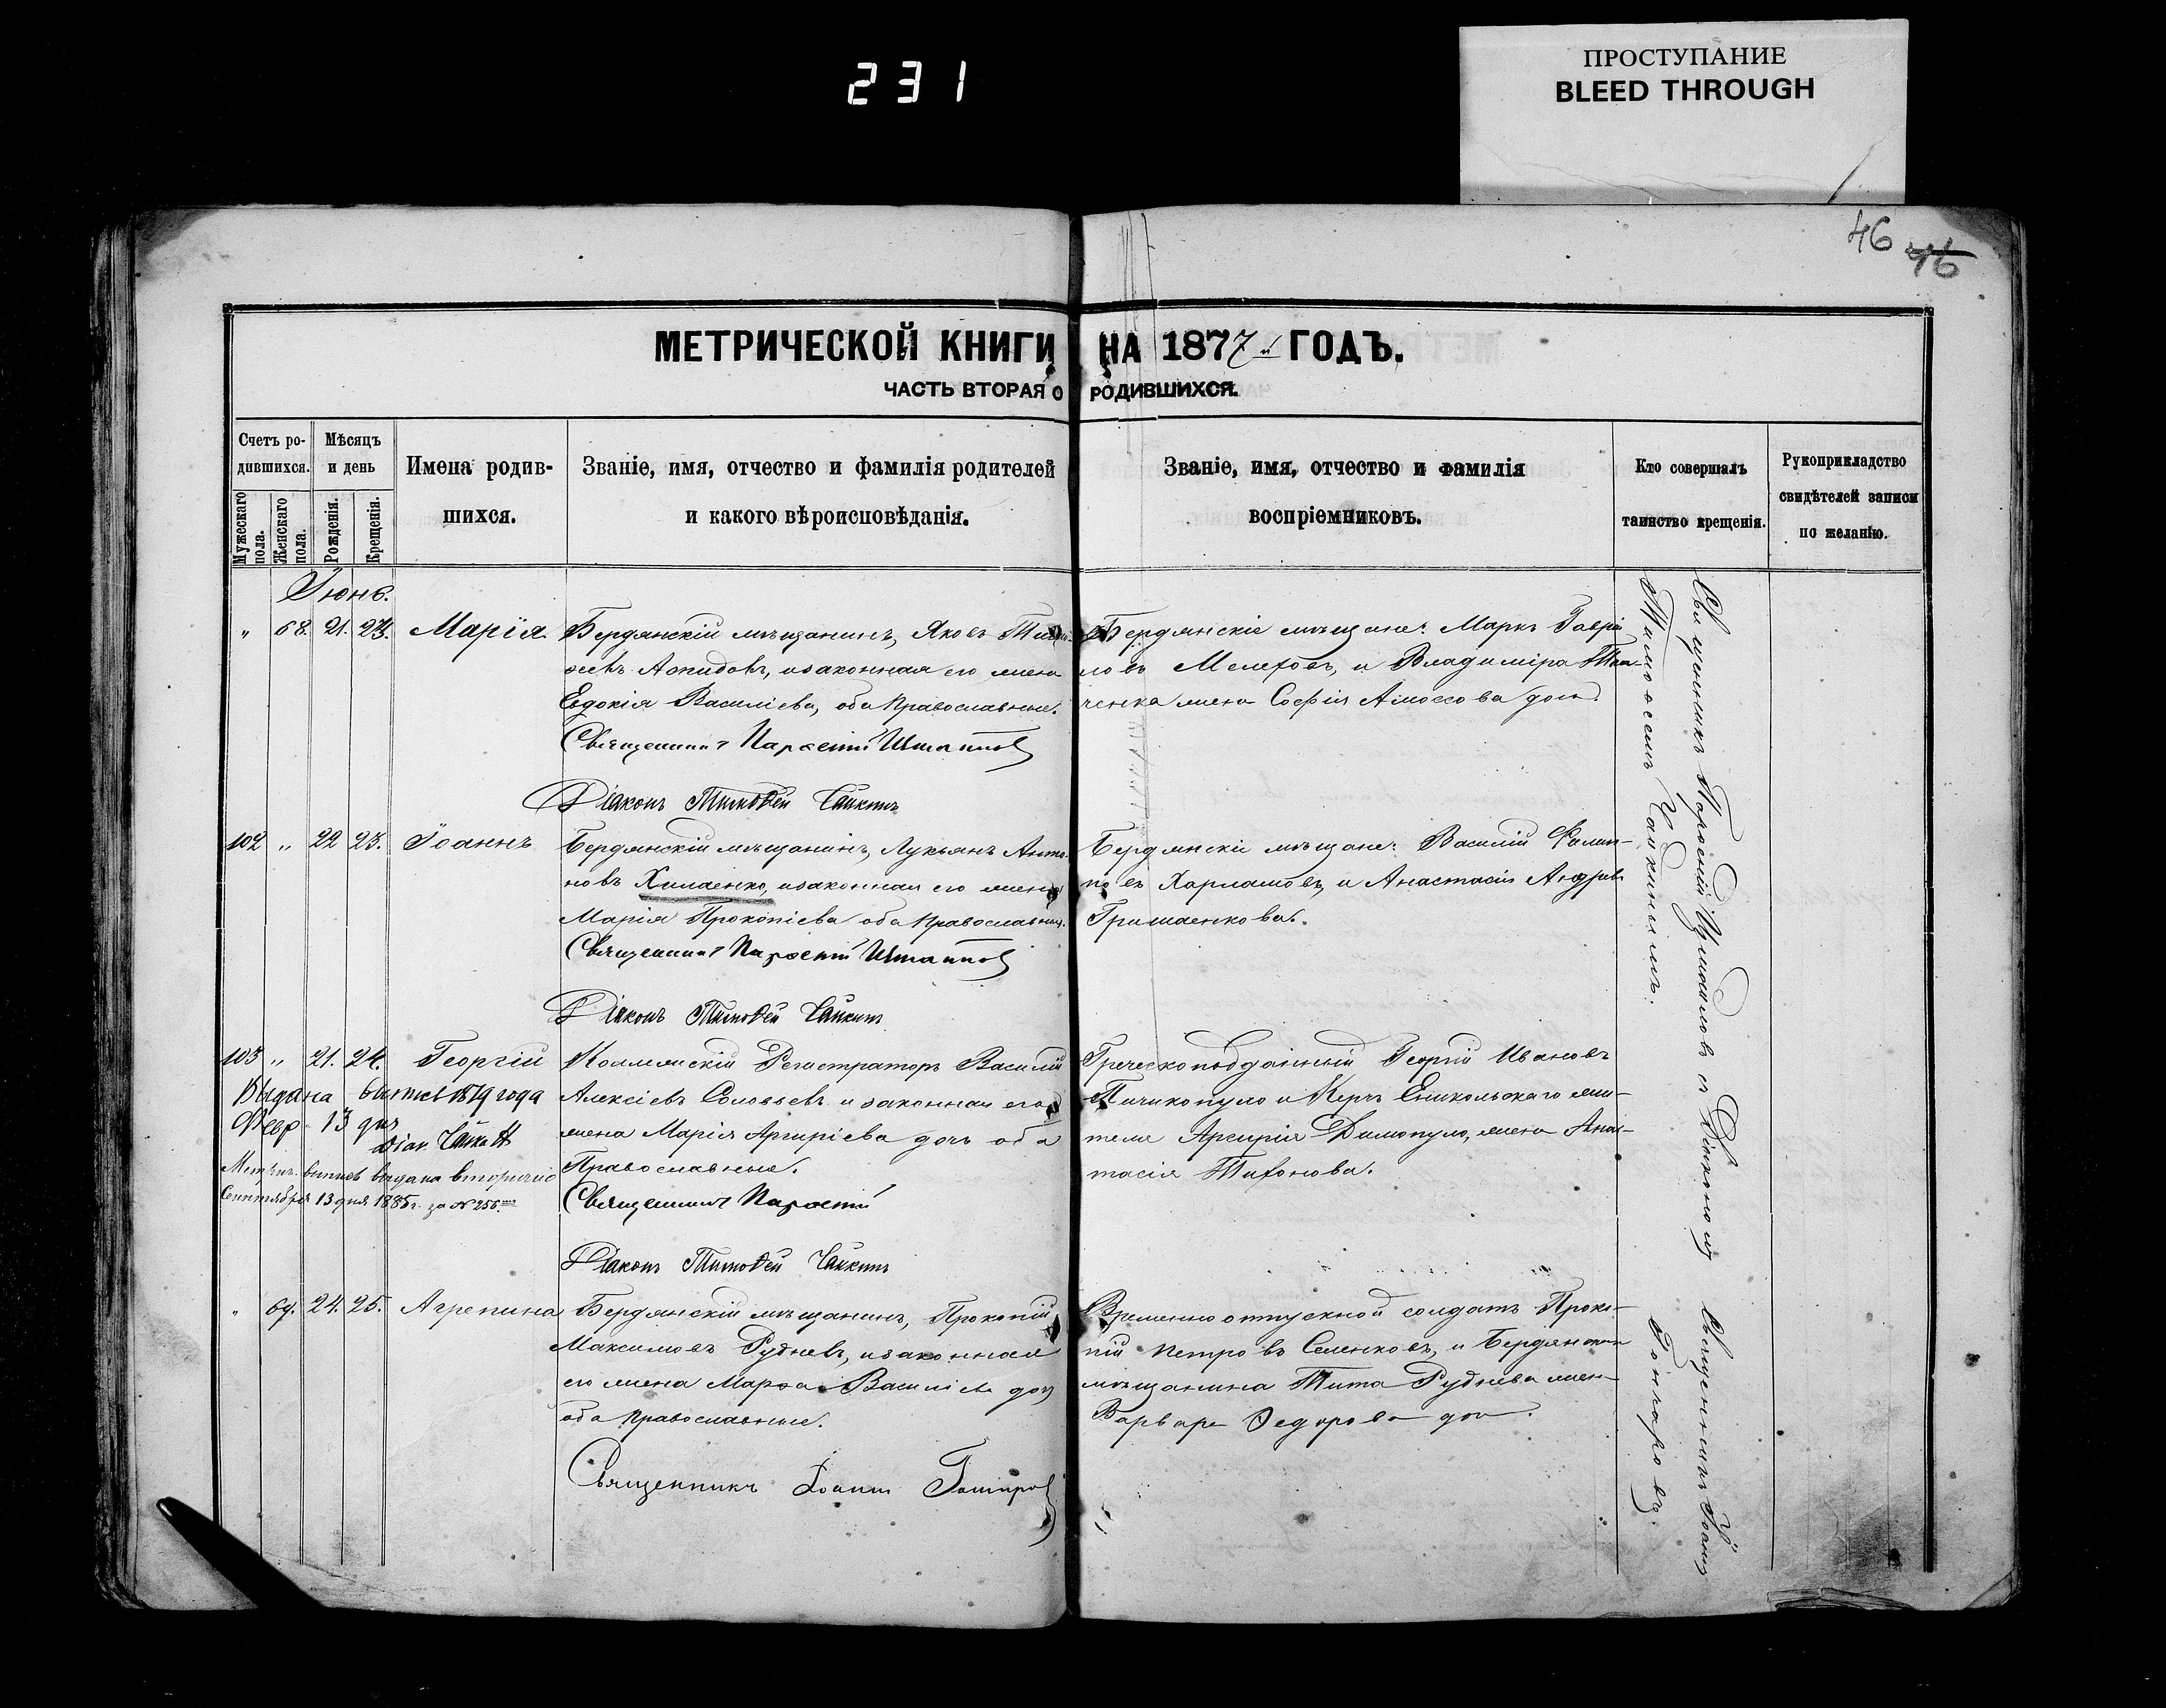 231
ПРОСТУПАНИЕ
BLEED THROUGH
46 46
МЕТРИЧЕСКОЙ КНИГИ НА 1877й ГОДЪ.
ЧАСТЬ ВТОРАЯ О РОДИВШИХСЯ.
Счетъ родившихся.
Мужескаго пола.
Женскаго пола.
Мѣсяцъ и день
Рожденія.
Крещенія.
Имена родив-
шихся.
Званіе, имя, отчество и фамилія родителей
и какого вѣроисповѣданія.
Званіе, имя, отчество и фамилія
воспріемниковъ.
Кто совершалъ
таинство крещенія.
Рукоприкладство
свидѣтелей записи
по желанію.
Іюнь.
" 68. 21. 23. Марія.
Бердянскій мѣщанинъ, Яковъ
и законная его жена
Евдокія Василіева, оба православные.
Священникъ Парѳеній
Діаконъ Тимоѳей Чайкинъ
Бердянскіе мѣщане: Маркъ Гаврі-
ловъ Мелеховъ, и Владиміра
ченка жена Софія Амоссова дочь.
102 " 22 23. Іоаннъ
Бердянскій мѣщанинъ, Лукьянъ Анто-
новъ Хилаенко, и законная его жена
Марія Прокопіева оба православные.
Священникъ Парѳеній
Діаконъ Тимоѳей Чайкинъ
Бердянскіе мѣщане: Василій Филип-
повъ Харламовъ, и Анастасія Андрѣева
Гришаенкова.
103 " 21. 24. Георгій
Выдана выпись 1879 года
Февр 13 дня
Діак. Чайкинъ
Метрич. выпись выдана вторично
Сентября 13 дня 1885 г. за № 256.
Коллежскій Регистраторъ Василій
Алексѣевъ Соловьевъ и законная его
жена Марія Аргиріева дочь оба
Православные.
Священникъ Парѳеній
Діаконъ Тимоѳей Чайкинъ
Греческоподданный Георгій Ивановъ
Пичикопуло и Керчь Еникольскаго жи-
теля Аргирія Димопуло, жена Анас-
тасія Тихонова.
" 69. 24. 25. Агрепина
Бердянскій мѣщанинъ, Прокопій
Максимовъ Рудневъ, и законная
его жена Марѳа Василіева дочь
оба православные.
Священникъ Іоаннъ Гончаровъ
Временно отпускной солдатъ Проко-
пій Петровъ Селенковъ, и Бердянскаго
мѣщанина Тита Руднева жена
Варвара Ѳедорова дочь.
Священникъ Парѳеній съ Діакономъ
Тимоѳеемъ Чайкинымъ.
Священникъ Іоаннъ
Гончаровъ.